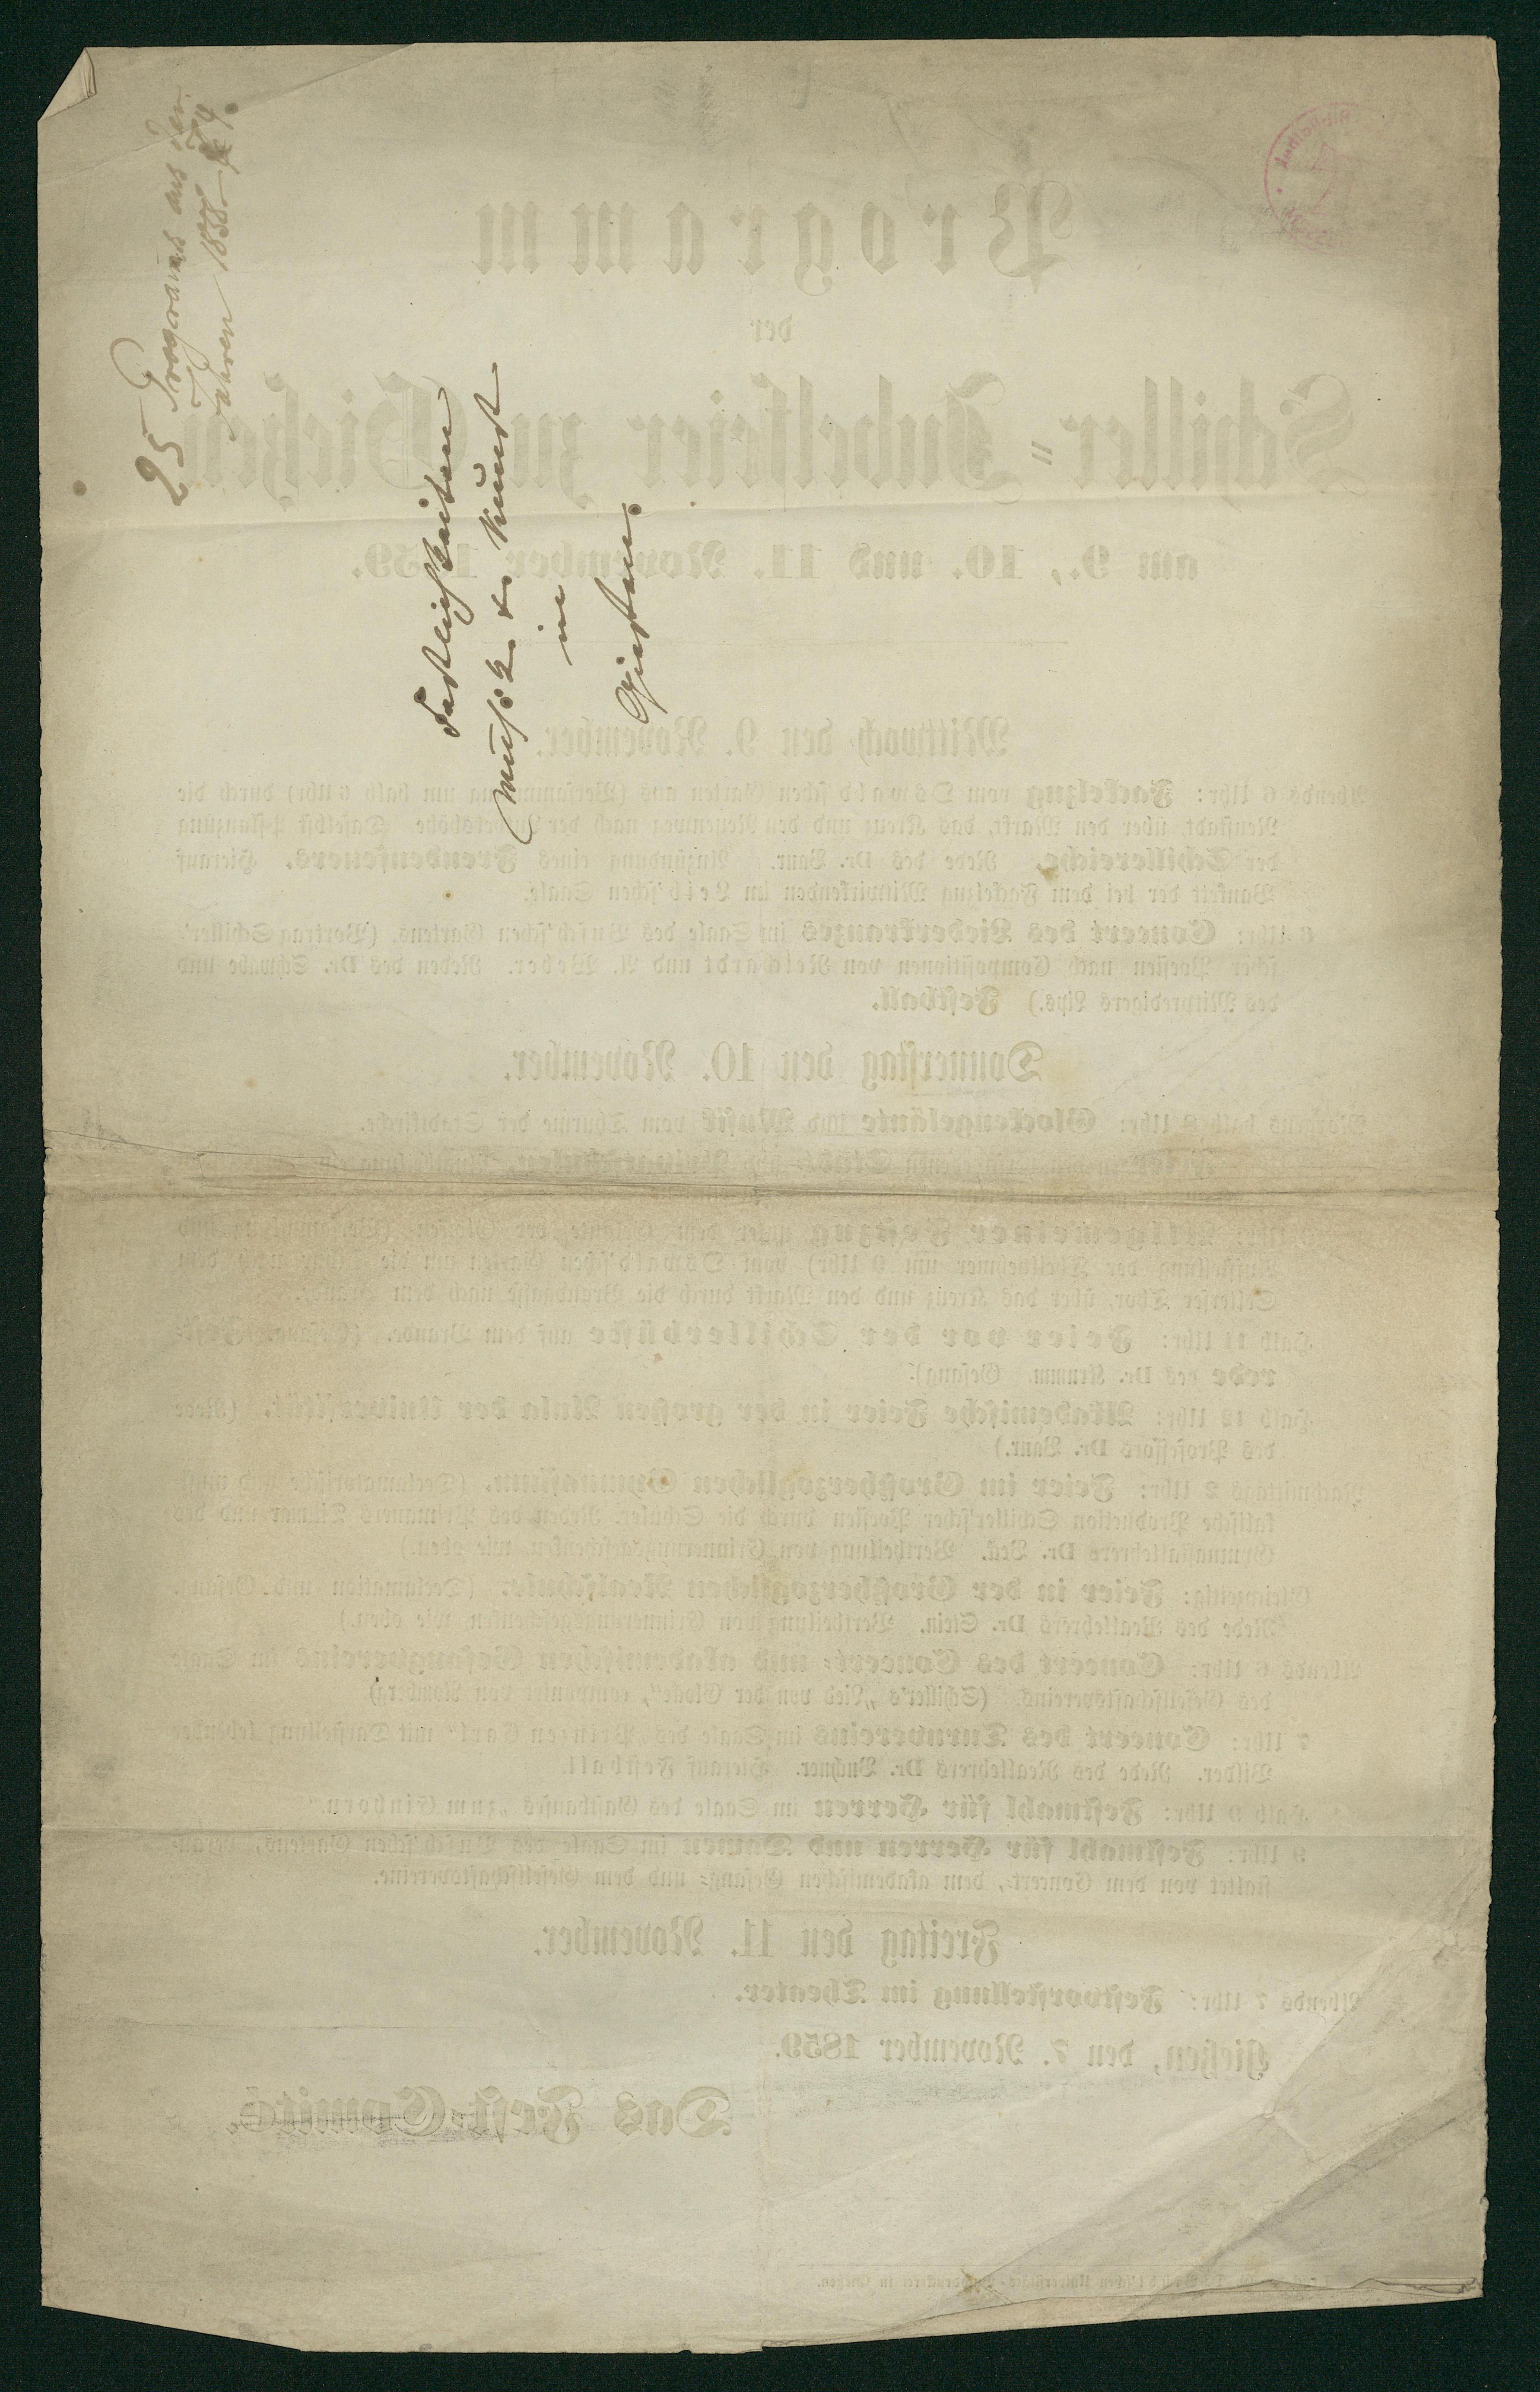 25 Programme aus den
Jahren 1838–
Festlichkeiten
Musik u. Kunst
in
Giessen.
Programm
der
Schiller-Jubelfeier zu Gießen
am 9., 10. und 11. November 1859.
Mittwoch den 9. November.
Abends 6 Uhr: Fackelzug vom Oswald'schen Garten aus (Versammlung um halb 6 Uhr) durch die
Neustadt, über den Markt, das Kreuz und den Neuenweg nach der Ludwigshöhe. Daselbst Pflanzung
der Schillereiche. Rede des Dr. Baur. Anzündung eines Freudenfeuers. Hierauf
Bankett der bei dem Fackelzug Mitwirkenden im Leib'schen Saale.
6 Uhr: Concert des Liederkranzes im Saale des Busch'schen Gartens. (Vortrag Schiller'-
scher Poesien nach Compositionen von Reichardt und A. Weber. Reden des Dr. Schwabe und
des Mitpredigers Lips.) Festball.
Donnerstag den 10. November.
Morgens halb 8 Uhr: Glockengeläute und Musik vom Thurme der Stadtkirche.
Allgemeiner Festzug unter dem Geläute der Glocken. (Versammlung und
Aufstellung der Theilnehmer um 9 Uhr) vom Oswald'schen Garten um die nach dem
Selterser Thor, über das Kreuz und den Markt durch die Brandgasse nach dem Brande.
Halb 11 Uhr: Feier vor der Schillerbüste auf dem Brande. (Gesang. Fest-
rede des Dr. Krumm. Gesang).
Halb 12 Uhr: Akademische Feier in der großen Aula der Universität. (Rede
des Professors Dr. Baur.)
Nachmittags 2 Uhr: Feier im Großherzoglichen Gymnasium. (Declamatorische und musi-
kalische Production Schiller'scher Poesien durch die Schüler. Reden des Primaners und des
Gymnasiallehrers Dr. Beck. Vertheilung von Erinnerungsgeschenken, wie oben.)
Gleichzeitig: Feier in der Großherzoglichen Realschule. (Declamation und Gesang.
Rede des Reallehrers Dr. Stein. Vertheilung von Erinnerungsgeschenken, wie oben.)
Abends 6 Uhr: Concert des Concert- und akademischen Gesangvereins im Saale
des Gesellschaftsvereins. (Schiller's „Lied von der Glocke“, componirt von Romberg)
7 Uhr: Concert des Turnvereins im Saale des „Prinzen Carl“ mit Darstellung lebender
Bilder. Rede des Reallehrers Dr. Buchner. Hierauf Festball.
Halb 9 Uhr: Festmahl für Herren im Saale des Gasthauses „zum Einhorn.“
9 Uhr: Festmahl für Herren und Damen im Saale des Busch'schen Gartens, veran-
staltet von dem Concert-, dem akademischen Gesang- und dem Gesellschaftsvereine.
Freitag den 11. November.
Abends 7 Uhr: Festvorstellung im Theater.
Gießen, den 7. November 1859.
Das Fest-Comité.